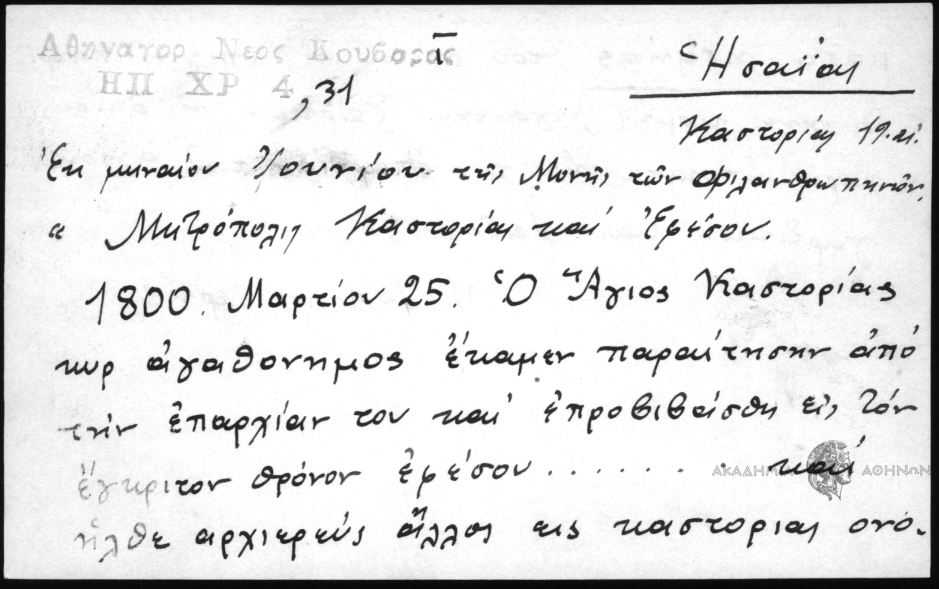 Αθηναγορ Νεος Κουβαρας Ι
ΗΠ ΧΡ 4 , 31
Ἡσαΐας
Καστορίας 19. αἰ.
Ἐκ μηναίου Ἰουνίου τῆς Μονῆς τῶν Φιλανθρωπηνῶν.
" Μητρόπολις Καστορίας καὶ Ἐφέσου.
1800. Μαρτίου 25. Ὁ Ἅγιος Καστορίας
κυρ ἀγαθονημος ἔκαμεν παραίτησην ἀπό
τὴν ἐπαρχίαν του καὶ ἐπροβιβάσθη εἰς τόν
ἔγκριτον θρόνον ἐφέσου . . . . . . . καὶ
ἦλθε αρχιερεύς ἄλλος εις καστοριας ονό-
ΑΚΑΔΗΜΙΑ ΑΘΗΝΩΝ